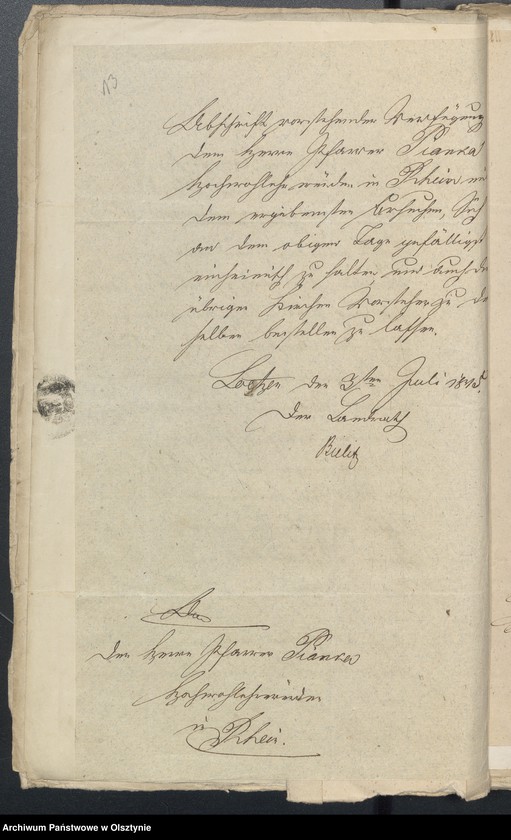 13
Abschrift vorstehender Verfügung
dem Herrn Pfarrer Pianka
Hochwohlehrwürden in Rhein
dem ergebensten Ersuchen, Sich
an dem obigen Tage gefälligst
einheimisch zu halten, und auch die
übrigen Kirchen Vorsteher zu
selben bestellen zu lassen.
Loetzen den 3ten Juli
Der Landrath
An
den Herrn Pfarrer Pianka
Hochwohlehrwürden
in Rhein.
Archiwum Państwowe w Olsztynie